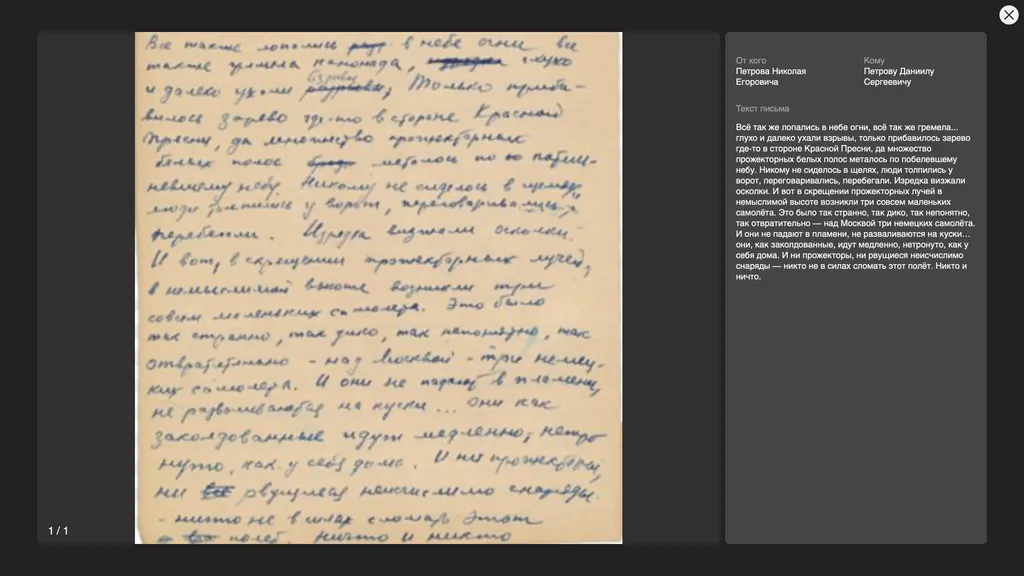 Все также лопались в небе огни все
также гремела канонада, глухо
и далеко ухали взрывы, только приба-
вилось зарево где-то в стороне Красной
Пресни, да множество прожекторных
белых полос металось по
небу. Никому не сиделось в щелях,
люди толпились у ворот, переговаривались,
перебегали. Изредка визжали осколки.
И вот, в скрещении прожекторных лучей,
в немыслимой высоте возникли три
совсем маленьких самолета. Это было
так странно, так дико, так непонятно, так
отвратительно - над Москвой - три немец-
ких самолета. И они не падают в пламени,
не разваливаются на куски... они как
заколдованные идут медленно, нетро-
нуто, как у себя дома. И ни прожекторы,
ни рвущиеся неисчислимо снаряды
- ничто не в силах сломать этот
полет. Ничто и никто
1 / 1
От кого
Петрова Николая
Егоровича
Кому
Петрову Даниилу
Сергеевичу
Текст письма
Всё так же лопались в небе огни, всё так же гремела...
глухо и далеко ухали взрывы, только прибавилось зарево
где-то в стороне Красной Пресни, да множество
прожекторных белых полос металось по побелевшему
небу. Никому не сиделось в щелях, люди толпились у
ворот, переговаривались, перебегали. Изредка визжали
осколки. И вот в скрещении прожекторных лучей в
немыслимой высоте возникли три совсем маленьких
самолёта. Это было так странно, так дико, так непонятно,
так отвратительно — над Москвой три немецких самолёта.
И они не падают в пламени, не разваливаются на куски...
они, как заколдованные, идут медленно, нетронуто, как у
себя дома. И ни прожекторы, ни рвущиеся неисчислимо
снаряды — никто не в силах сломать этот полёт. Никто и
ничто.